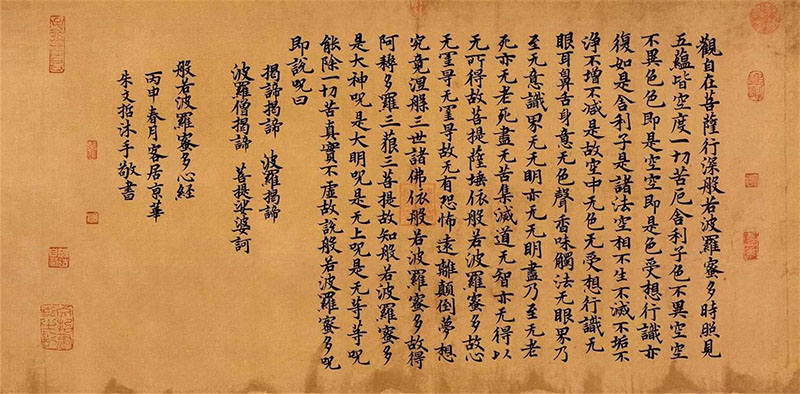 觀自在菩薩行深般若波羅蜜多時照見
五蘊皆空度一切苦厄舍利子色不異空空
不異色色即是空空即是色受想行識亦
復如是舍利子是諸法空相不生不滅不垢不
淨不增不減是故空中无色无受想行識无
眼耳鼻舌身意无色聲香味觸法无眼界乃
至无意識界无无明亦无无明盡乃至无老
死亦无老死盡无苦集滅道无智亦无得以
无所得故菩提薩埵依般若波羅蜜多故心
无罣㝵无罣㝵故无有恐怖遠離顛倒夢想
究竟涅槃三世諸佛依般若波羅蜜多故得
阿耨多羅三藐三菩提故知般若波羅蜜多
是大神呪是大明呪是无上呪是无等等呪
能除一切苦真實不虛故說般若波羅蜜多呪
即說呪曰
揭諦揭諦 波羅揭諦
波羅僧揭諦 菩提娑婆訶
般若波羅蜜多心經
丙申春月客居京華
朱 沐手敬書